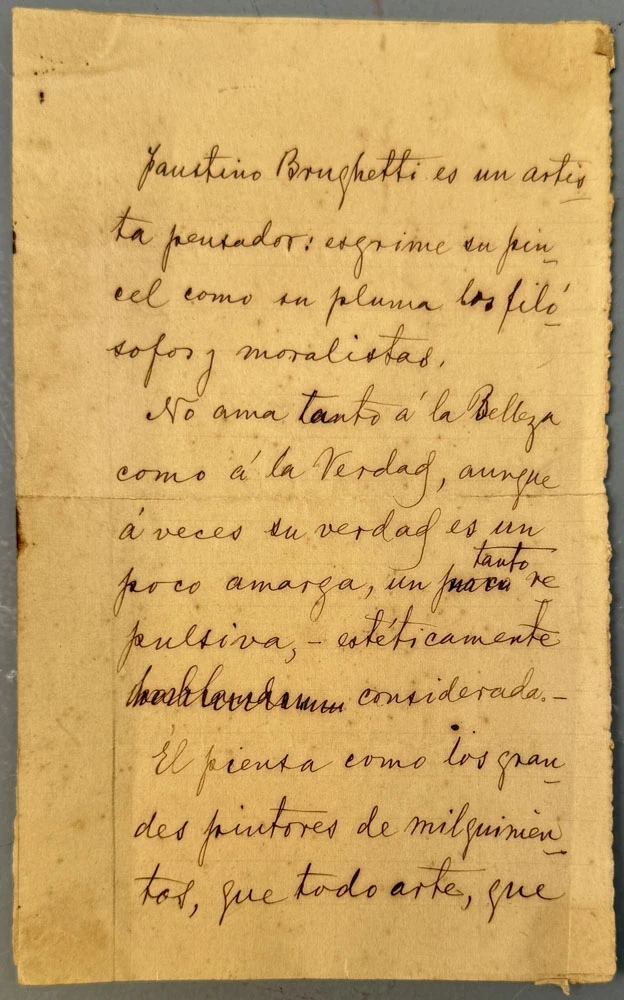 Faustino Brughetti es un artis-
ta pensador: esgrime su pin-
cel como su pluma los filó-
sofos y moralistas.
No ama tanto á la Belleza
como á la Verdad, aunque
á veces su verdad es un
tanto
poco amarga, un poco re
pulsiva, - estéticamente
considerada. -
Él piensa como los gran-
des pintores de milquinien-
tos, que todo arte, que